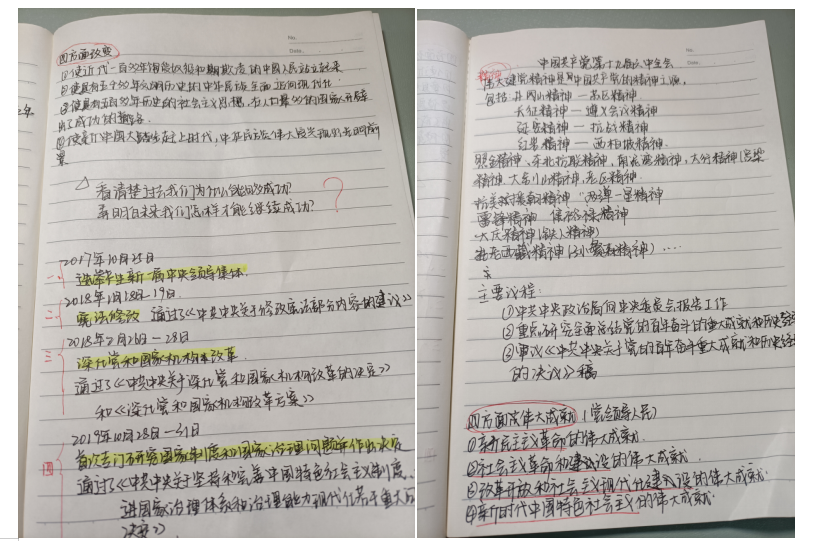 No.
Date.
四方面改变
①使近代一百多年饱受奴役和欺凌的中国人民站立起来
②使具有五千多年文明历史的中华民族全面迈向现代化
③使具有五百多年历史的社会主义思想,在人口最多的国家开辟
出了成功的
④使 中国大踏步赶上时代,中华民族伟大复兴 光明前
景
看清楚过去我们为什么能够成功?
弄明白未来我们怎样才能继续成功?
?
2017年10月25日
一、选举产生新一届中央领导集体.
2018年1月18日-19日.
二、宪法修改 通过了《中共中央关于修改宪法部分内容的建议》
2018年2月26日-28日
三 深化党和国家机构改革.
通过了《中共中央关于深化党和国家机构改革的决定》
和《深化党和国家机构改革方案》
2019年10月28日-31日
四 首次专门研究国家制度和国家治理问题并作出决定
通过了《中共中央关于坚持和完善中国特色社会主义制度、
进国家治理体系和治理能力现代化若干重大
决定》
No.
Date.
中国共产党第十九届六中全会
精神
伟大建党精神是中国共产党的精神之源.
包括井冈山精神-苏区精神
长征精神-遵义会议精神
延安精神-抗战精神
红岩精神-西柏坡精神.
照金精神、东北抗联精神,南泥湾精神,太行精神(吕梁
精神 大别山精神,老区精神.
抗美援朝精神 两弹一星精神
雷锋精神 焦裕禄精神
大庆精神(铁人精神)
老西藏精神(孔繁森精神)....
主要议程:
①中共中央政治局向中央委员会报告工作
②重点研究全面总结党的百年奋斗的重大成就和历史经验
③审议《中共中央关于党的百年奋斗重大成就和历史经
的决议》稿
四方面伟大成就(党领导人民)
①新民主主义革命的伟大成就.
②社会主义革命和建设的伟大成就.
③改革开放和社会主义现代化建设的伟大成就.
④新时代中国特色社会主义的伟大成就.